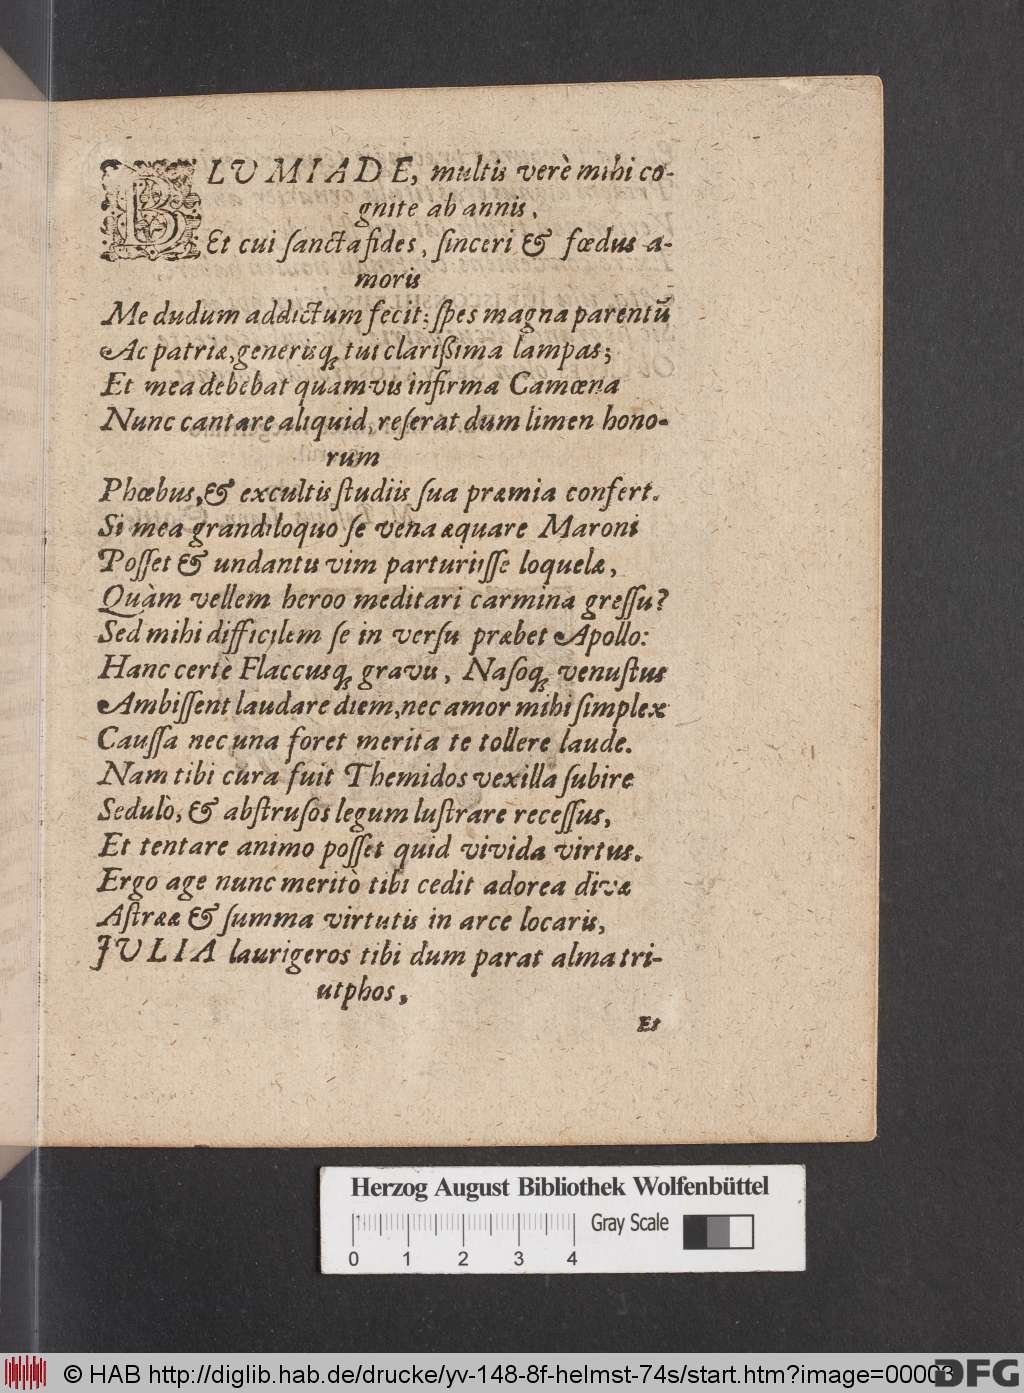 BLUMIADE, multis verè mihi co-
gnite ab annis,
Et cui sancta fides, sinceri & fœdus a-
moris
Me dudum addictum fecit; spes magna parentũ
Ac patriæ, generisq; tui clarißima lampas;
Et mea debebat quamvis infirma Camœna
Nunc cantare aliquid, reserat dum limen hono-
rum
Phœbus, & excultis studiis sua præmia confert.
Si mea grandiloquo se vena æquare Maroni
Posset & undantis vim parturiisse loquelæ,
Quàm vellem heroo meditari carmina gressu?
Sed mihi difficilem se in versu præbet Apollo:
Hanc certè Flaccusq; gravis, Nasoq; venustus
Ambissent laudare diem, nec amor mihi simplex
Caussa nec una foret merita te tollere laude.
Nam tibi cura fuit Themidos vexilla subire
Sedulò, & abstrusos legum lustrare recessus,
Et tentare animo posset quid vivida virtus.
Ergo age nunc meritò tibi cedit adorea divæ
Astrææ & summa virtutis in arce locaris,
JULIA laurigeros tibi dum parat alma tri-
utphos,
Et
Herzog August Bibliothek Wolfenbüttel
Gray Scale
0 1 2 3 4
© HAB http://diglib.hab.de/drucke/yv-148-8f-helmst-74s/start.htm?image=00003
DFG